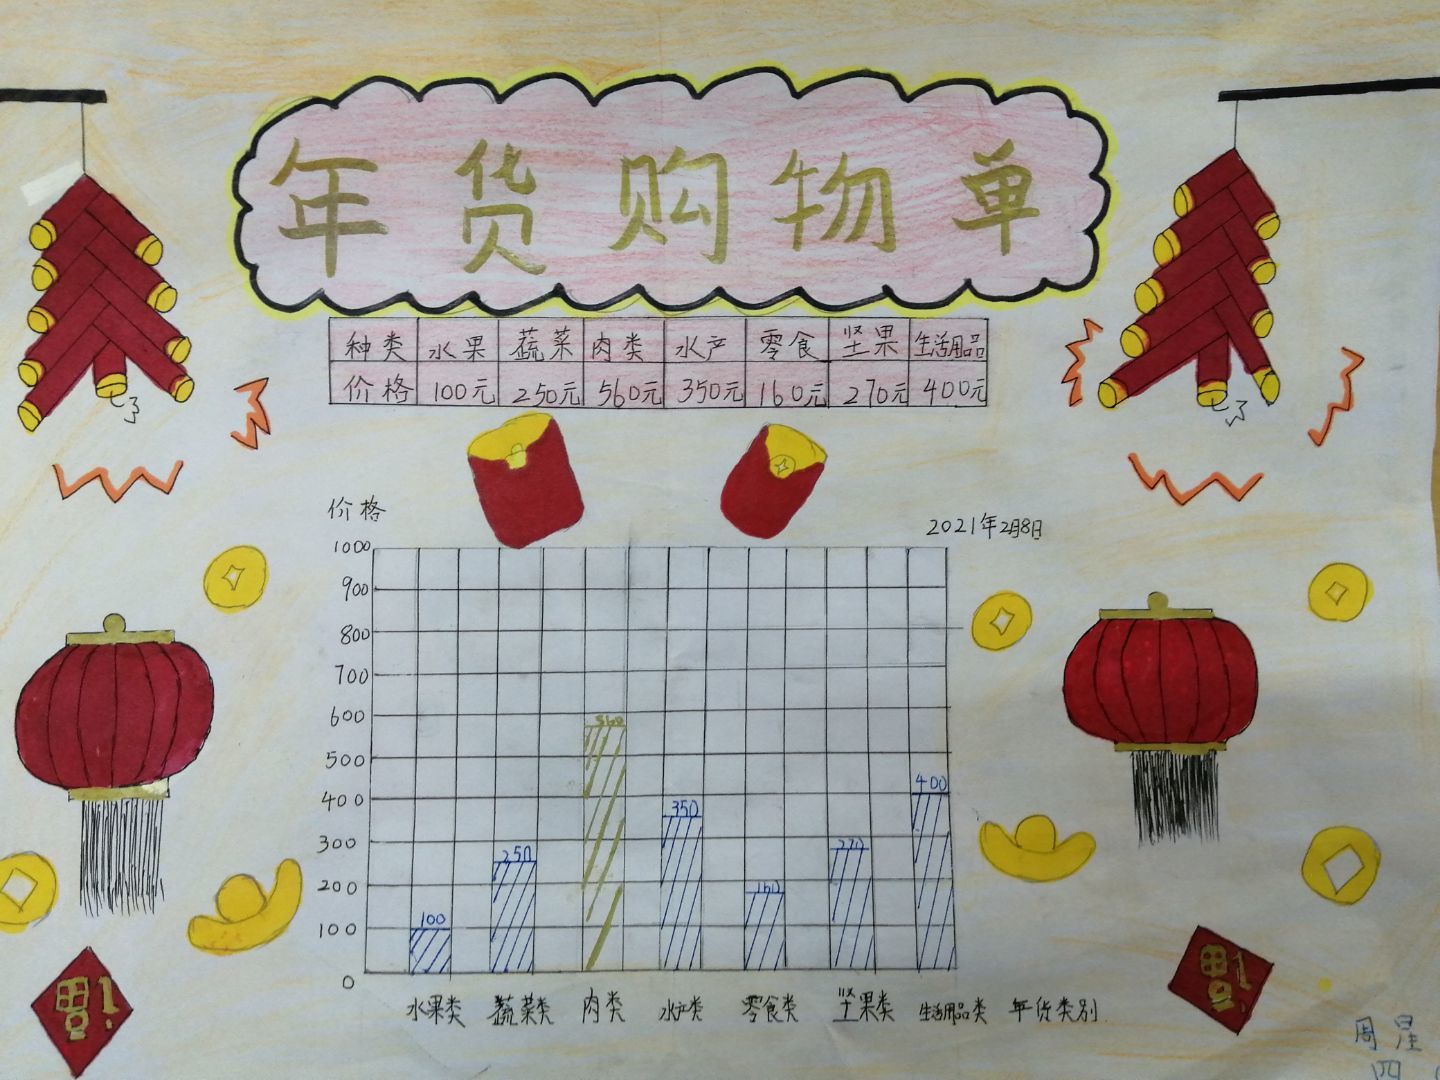 年货购物单
种类 水果 蔬菜 肉类 水产 零食 坚果 生活用品
价格 100元 250元 560元 350元 160元 270元 400元
价格
2021年2月8日
1000
900
800
700
600
560
500
400
400
350
300
270
250
200
160
100
100
0
水果类 蔬菜类 肉类 水产类 零食类 坚果类 生活用品类 年货类别
福
福
周星
四